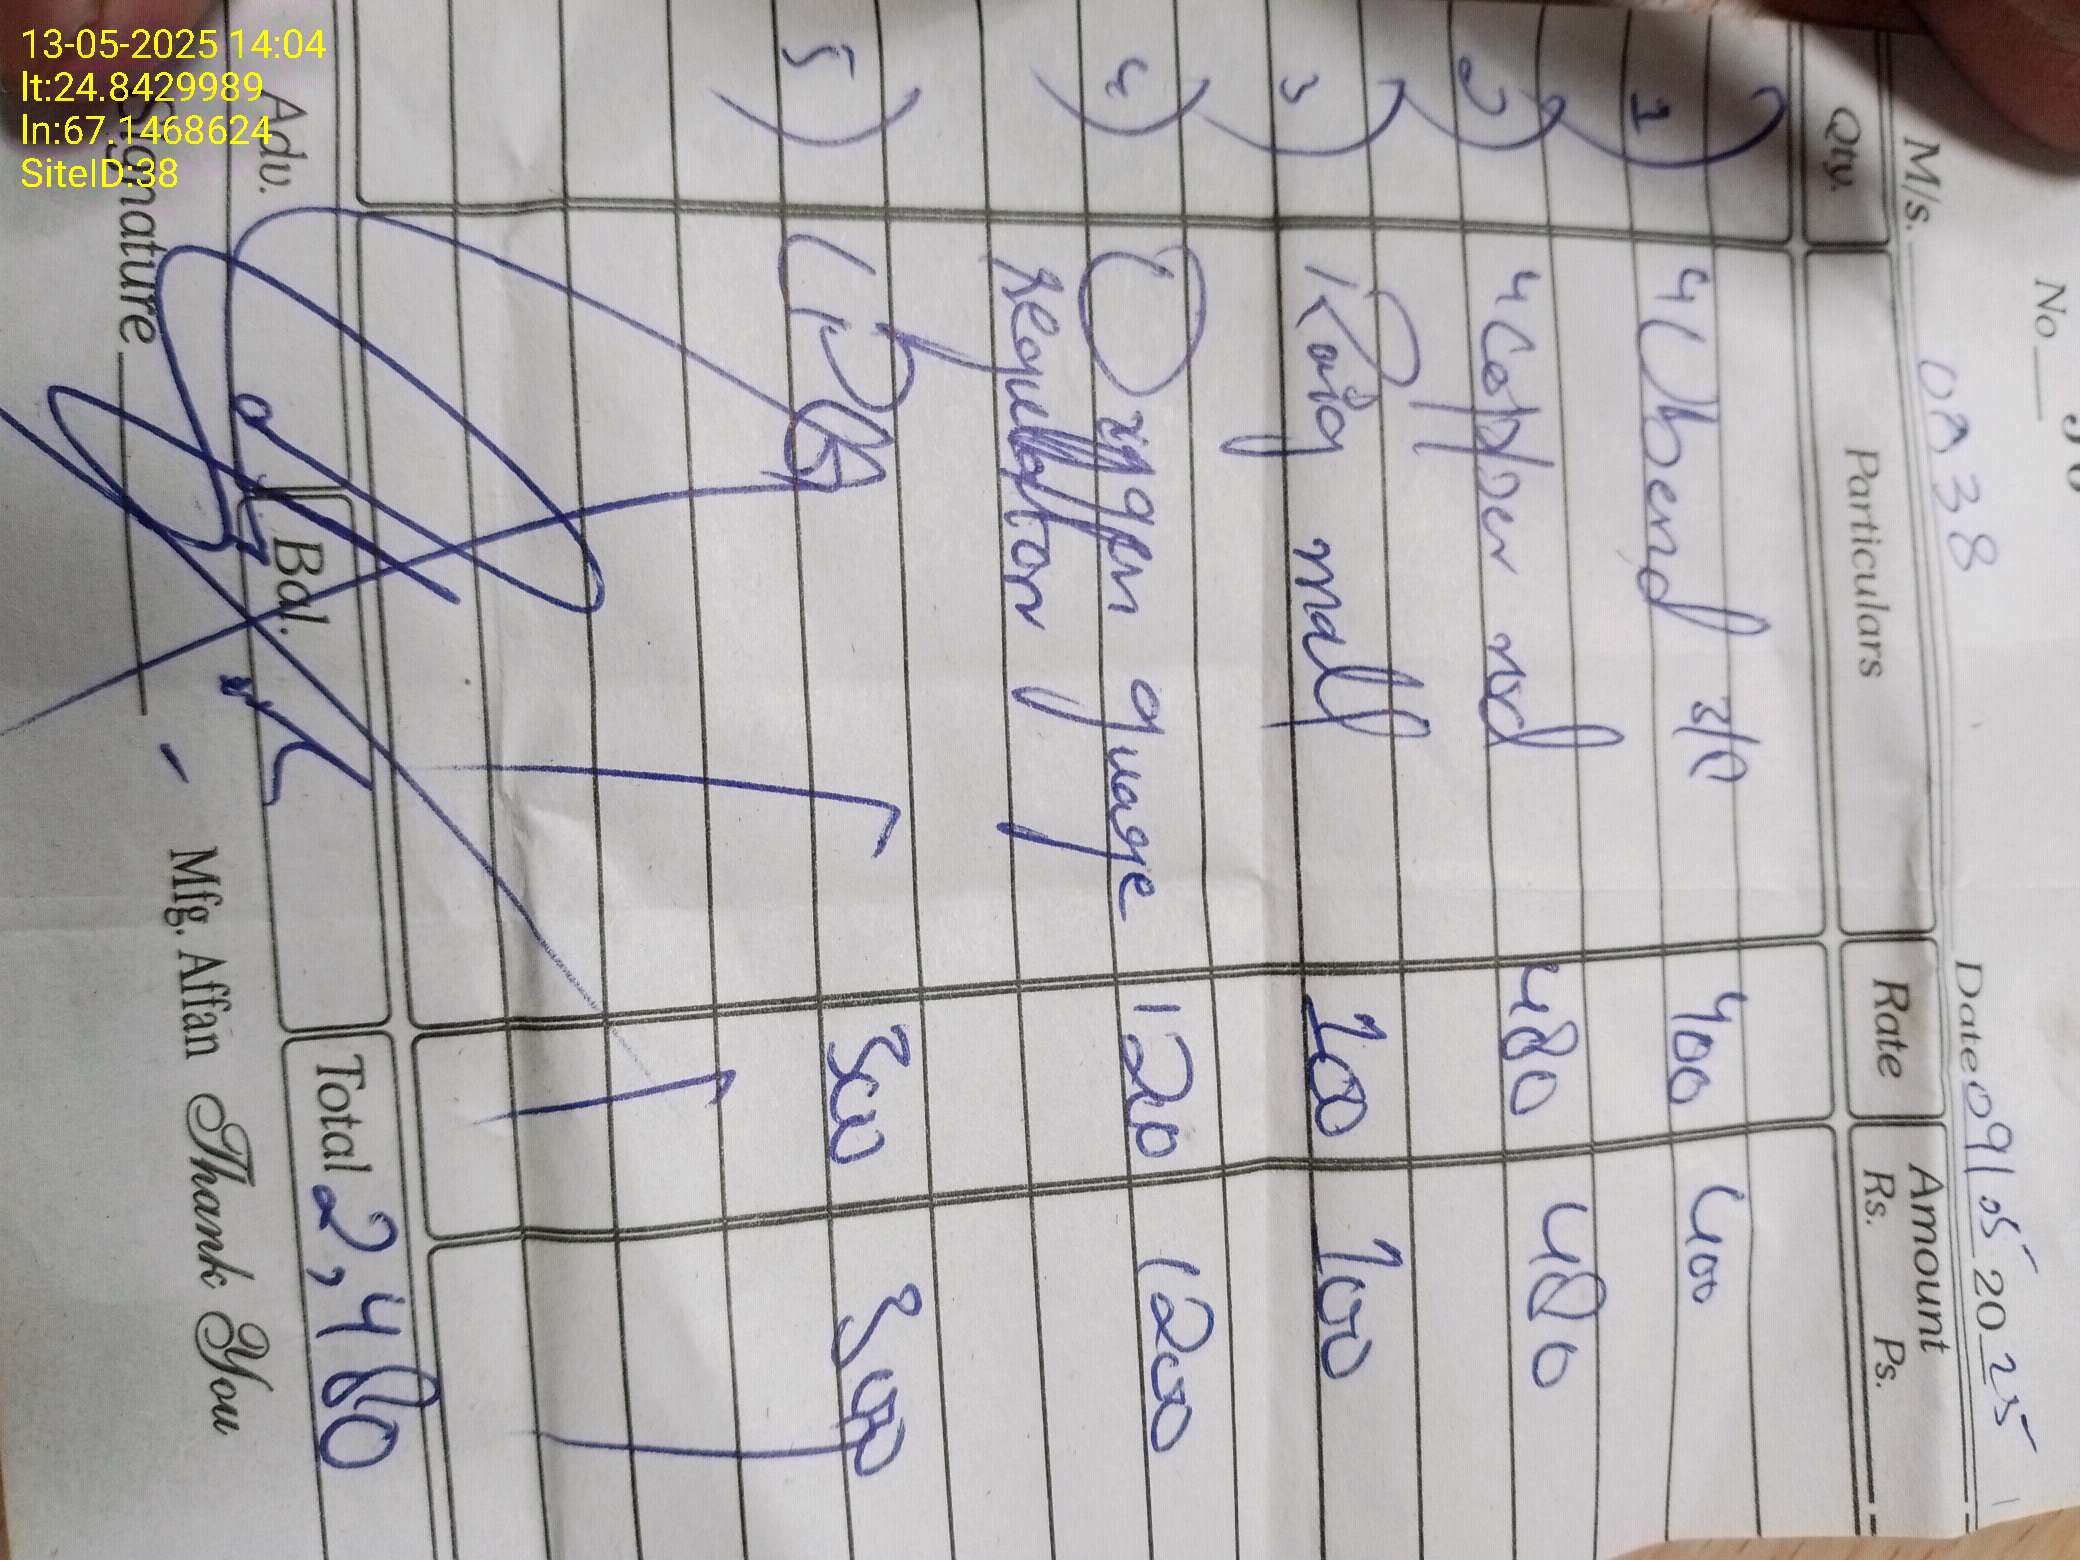 13-05-2025 14:04
lt:24.8429989
ln:67.1468624
SiteID:38
No
M/s. 0A38 Date 09/05 2025
Qty. Particulars Rate Amount
Rs. Ps.
1) 4 Ubend 3/8 400 400
2) 4 Copper rod 480 480
3) 100 100
4) Oxygen guage 120 1200
regulator
5) 300 300
Adv. Bal. Total 2,480
Signature
Mfg. Affan Thank You